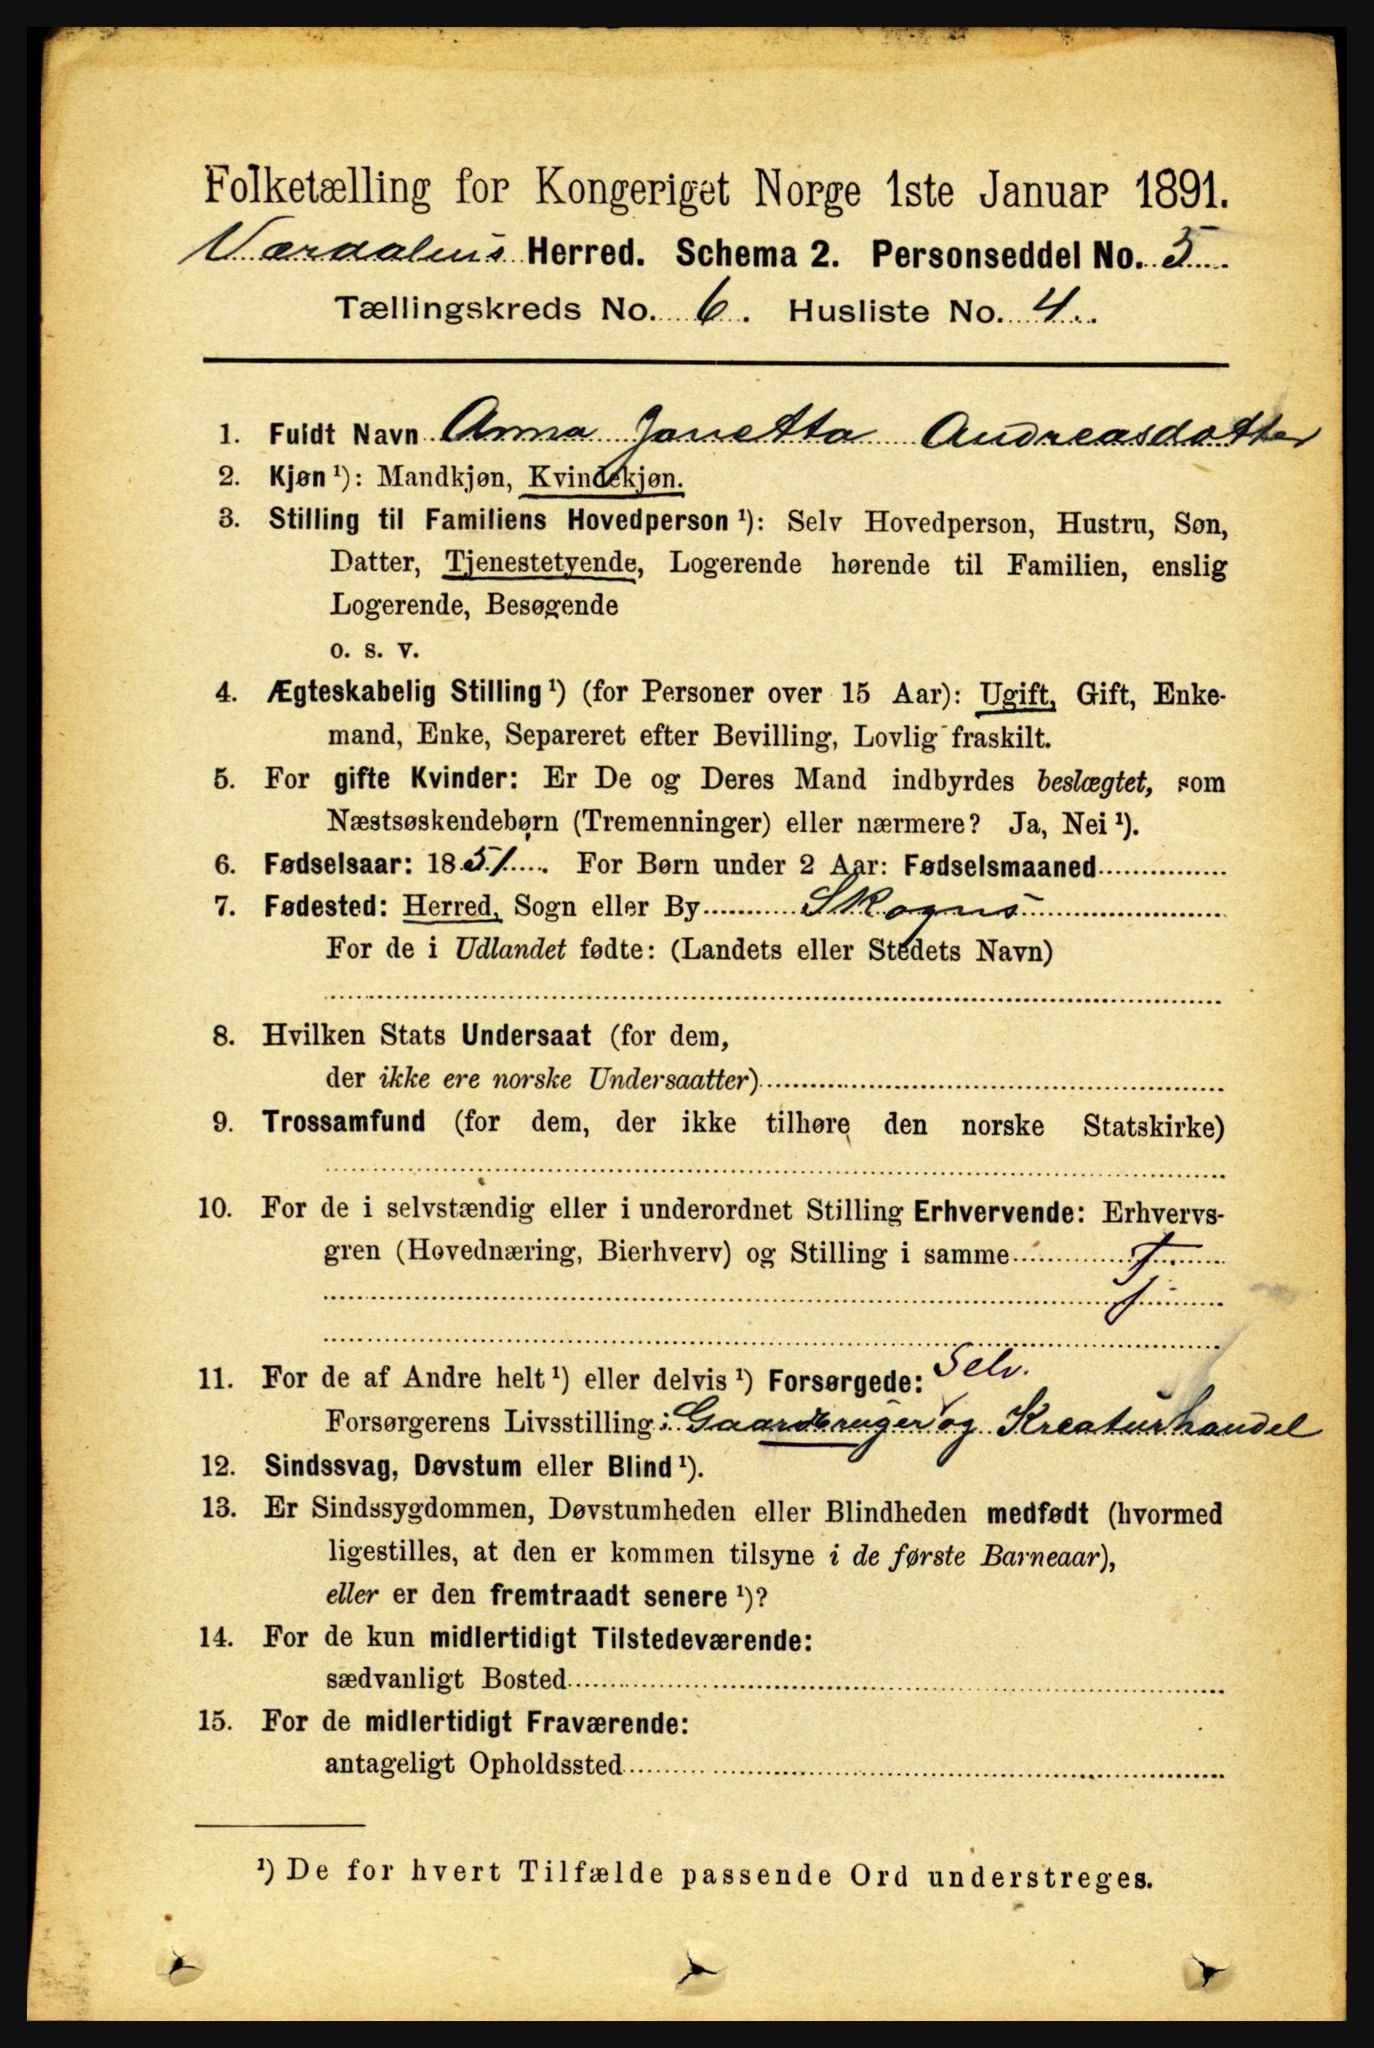 Folketælling for Kongeriget Norge 1ste Januar 1891.
Værdalens Herred. Schema 2. Personseddel No. 5
Tællingskreds No. 6. Husliste No. 4.
1. Fuldt Navn Anna Janetta Andreasdatter
2. Kjøn ¹): Mandkjøn, Kvindekjøn.
3. Stilling til Familiens Hovedperson ¹): Selv Hovedperson, Hustru, Søn,
Datter, Tjenestetyende, Logerende hørende til Familien, enslig
Logerende, Besøgende
o. s. v.
4. Ægteskabelig Stilling ¹) (for Personer over 15 Aar): Ugift, Gift, Enke-
mand, Enke, Separeret efter Bevilling, Lovlig fraskilt.
5. For gifte Kvinder: Er De og Deres Mand indbyrdes beslægtet, som
Næstsøskendebørn (Tremenninger) eller nærmere? Ja, Nei ¹).
6. Fødselsaar: 1851. For Børn under 2 Aar: Fødselsmaaned
7. Fødested: Herred, Sogn eller By Skogns
For de i Udlandet fødte: (Landets eller Stedets Navn)
8. Hvilken Stats Undersaat (for dem,
der ikke ere norske Undersaatter)
9. Trossamfund (for dem, der ikke tilhøre den norske Statskirke)
10. For de i selvstændig eller i underordnet Stilling Erhvervende: Erhvervs-
gren (Hovednæring, Bierhverv) og Stilling i samme T
11. For de af Andre helt ¹) eller delvis ¹) Forsørgede: Selv.
Forsørgerens Livsstilling: Gaardbruger og Kreaturhandel
12. Sindssvag, Døvstum eller Blind ¹).
13. Er Sindssygdommen, Døvstumheden eller Blindheden medfødt (hvormed
ligestilles, at den er kommen tilsyne i de første Barneaar),
eller er den fremtraadt senere ¹)?
14. For de kun midlertidigt Tilstedeværende:
sædvanligt Bosted
15. For de midlertidigt Fraværende:
antageligt Opholdssted
¹) De for hvert Tilfælde passende Ord understreges.